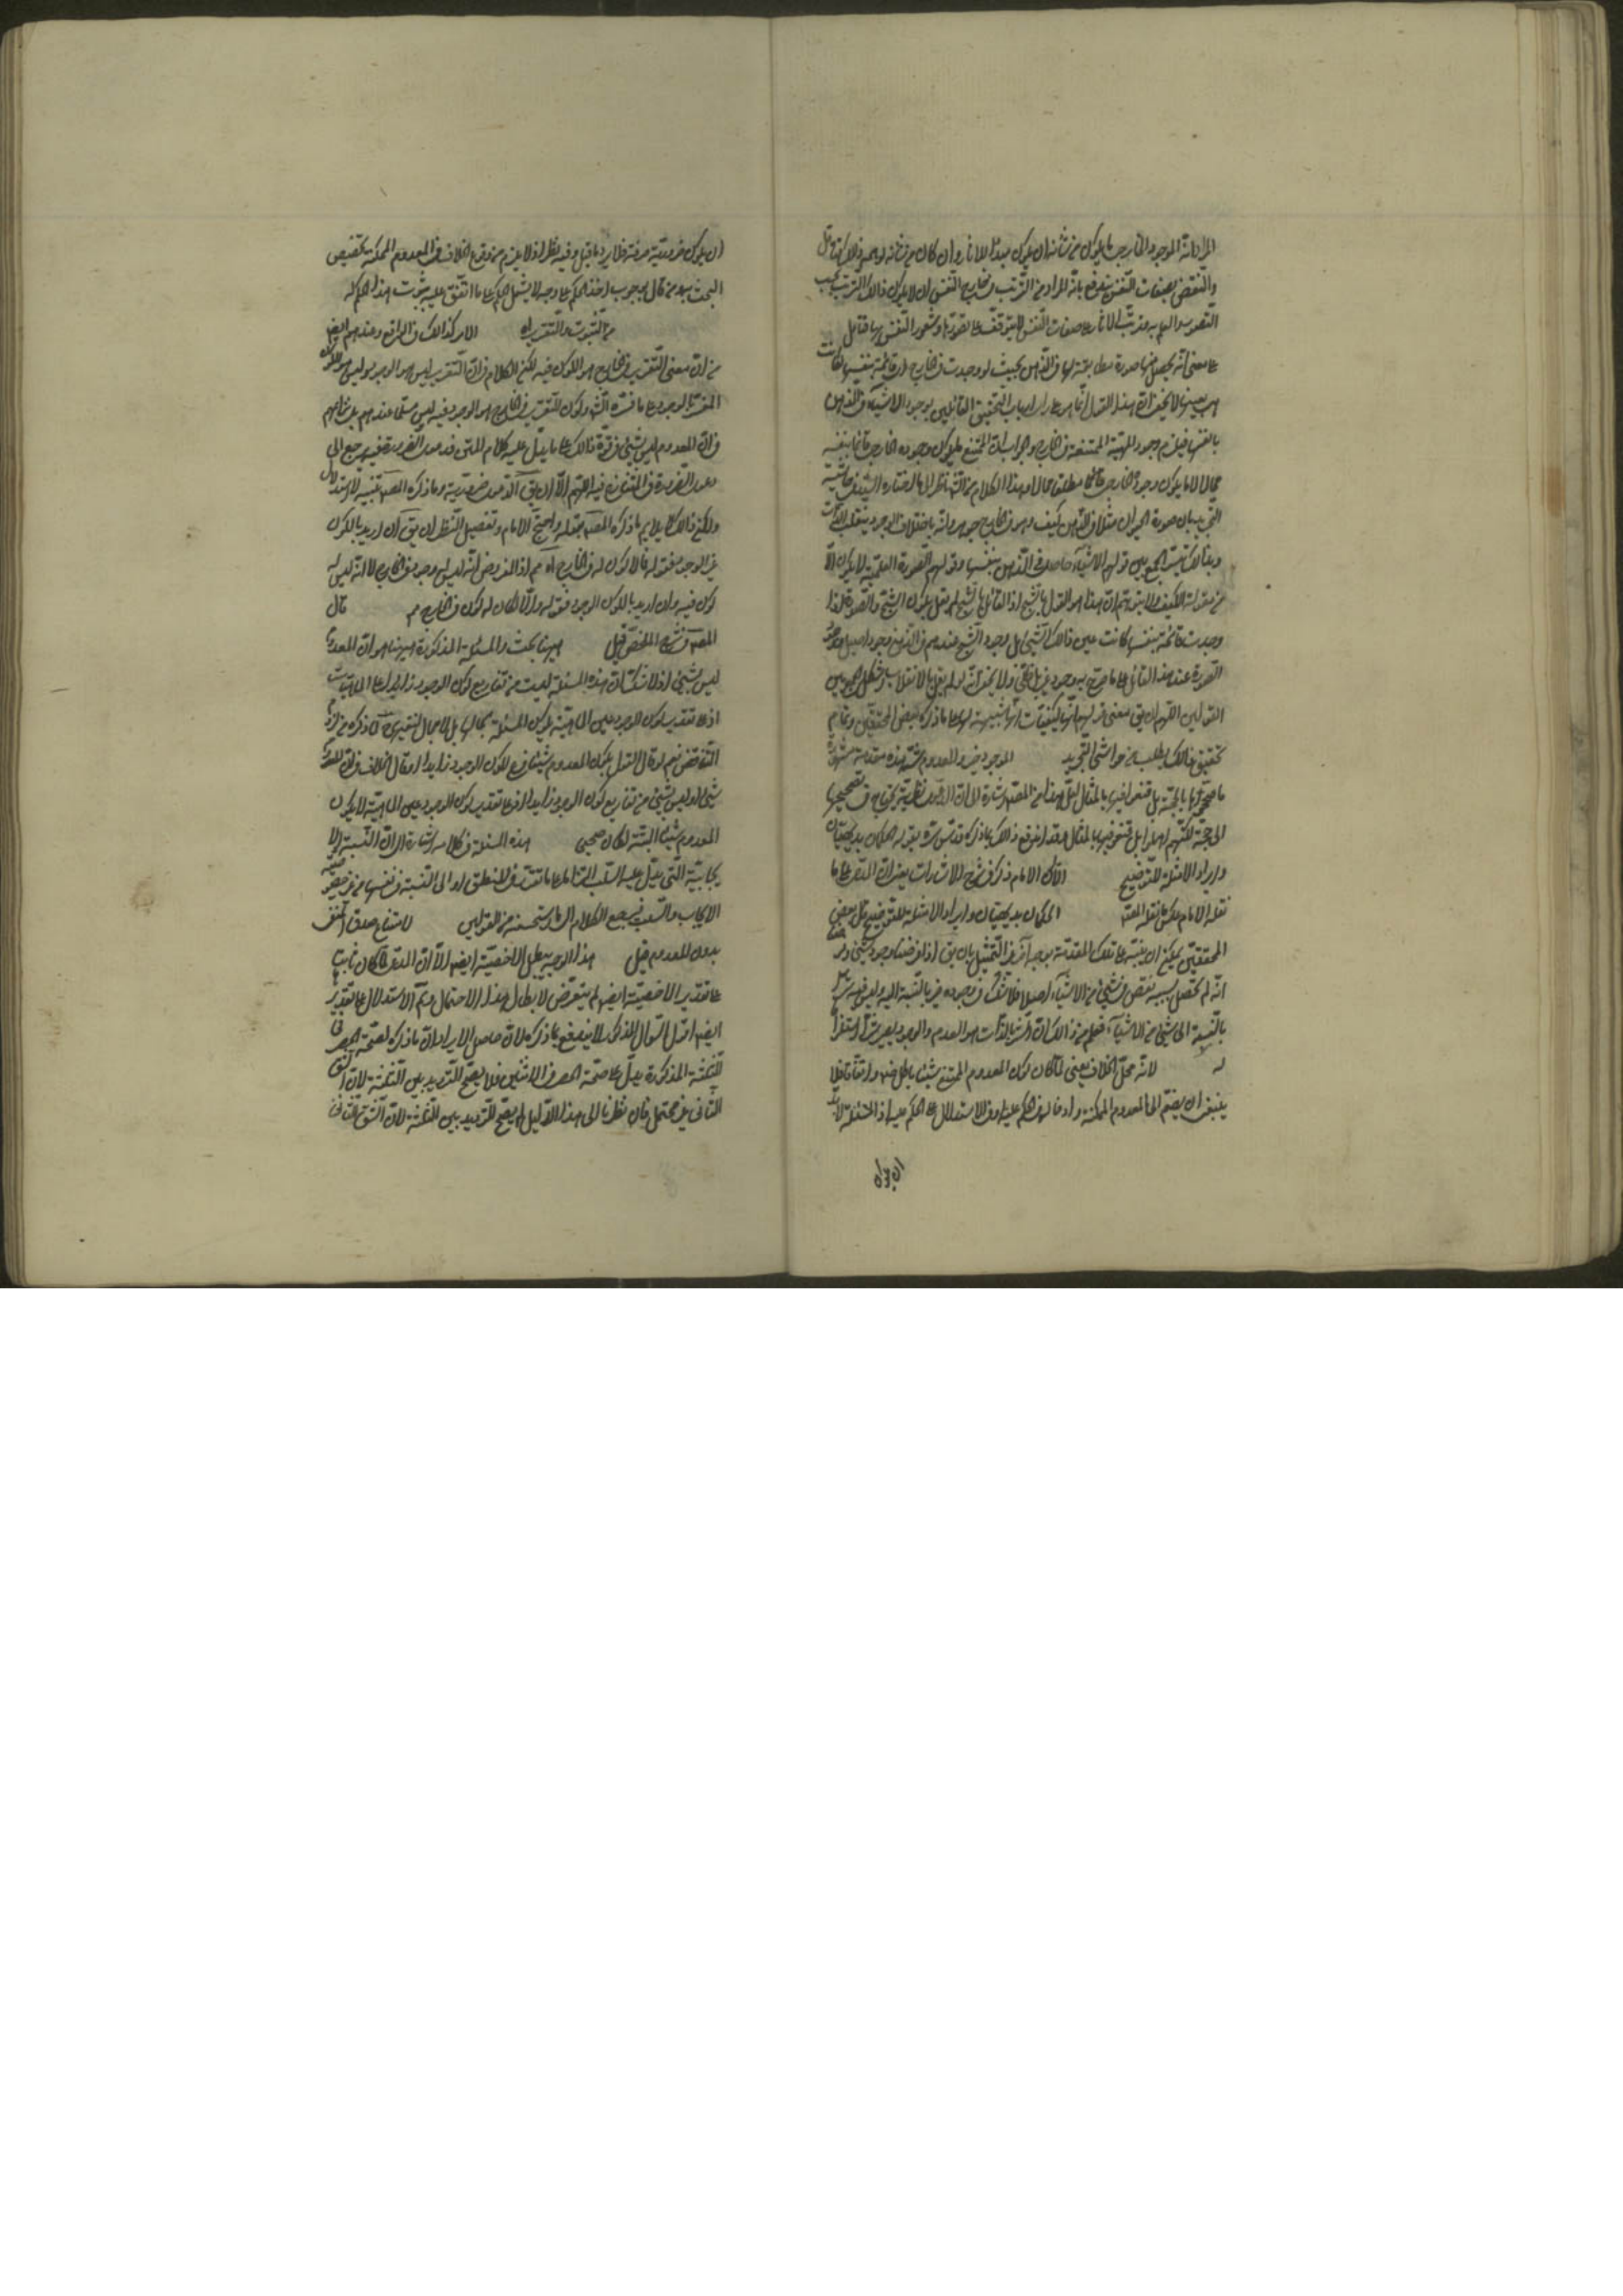 المراد انه الموجود الخارجي ما يكون من شانه ان يكون مبدءا للاثار وان كان من شانه
والنقض بصفات النفس مندفع بانه المراد من الترتب في خارج النفس ان لا يكون ذالك الترتب بحسب
التصور والعلم به وترتب الاثار على صفات النفس يتوقف على تصورها وشعور النفس بها فتامل
على معنى انه يحصل منها صورة مطابقة لها في الذهن بحيث لو وجدت في الخارج قائمة بنفسها لكانت
هي بعينها لا يخفى ان هذا القول انما هو على راى ارباب التحقيق القائلين بوجود الاشياء في الذهن
بانفسها فيلزم وجود المهية الممتنعة في الخارج والجواب ان الممتنع ما يكون وجوده الخارجي قائما بنفسه
محالا لا ما يكون وجوده الخارجي مطلق محالا وهذا الكلام من الش ناظر الى ما اختاره السيد في حاشية
التجريد بان صورة الحيوان مثلا في الذهن كيف وهو في الخارج جوهر وانه باختلاف الوجود ينقلب الذات
وبذالك يتيسر الجمع بين قولهم الاشياء حاصلة في الذهن بنفسها وقولهم الصورة العلمية لا يكون الا
من مقولة الكيف ولا يتوهم ان هذا هو القول بالشبح اذ القائل بالشبح لم يقل بكون الشبح والصورة لو
وجدت قائمة بنفسها كانت عين ذالك الشئ بل وجود الشبح عندهم في الذهن وجود اصيل ووجود
الصورة عند هذا القائل على ما صرح به وجود غير اصلي ولا يخفى انه لو لم يقل بالانقلاب يشكل الجمع بين
القولين اللهم ان يق معنى قولهم انها الكيفيات انها شبيهة لها على ما ذكره بعض المحققين وتمام
تحقيق ذالك يطلب من حواشى التجريد الموجود خير والمعدوم شر هذه مقدمة مشهورة
ما صححوها بالحجة بل قنعوا فيها بالمثال لعل هذا من المصنف اشارة الى ان الدعوى نظرية يحتاج في تصحيحها
الى حجة لكنهم اهملوا بل قنعوا فيها بالمثال وقد اندفع ذالك بما ذكره قدس سره بقوله الحكمان بديهيان
وايراد الامثلة للتوضيح الا ان الامام ذكر في شرح الاشارات يعنى ان الدعوى على ما
نقله الامام لا على ما نقله المصنف الحكمان بديهيان وايراد الامثلة للتوضيح قال بعض
المحققين يمكن ان ينبه على تلك المقدمة بوجه آخر غير التمثيل بان يق اذا فرضنا وجود شئ وفرض
انه لم يحصل بسببه نقص في شئ من الاشياء اصلا فلا شك في وجوده خير بالنسبة اليه وليس فيه شر
بالنسبة الى شئ من الاشياء فعلم من ذالك ان الشر بالذات هو العدم والوجود يعرض
له لانه محل الخلاف يعنى لما كان كون المعدوم الممتنع شيئا باطل ضرورة واتفاقا فلا
ينبغى ان يضم الى المعدوم الممكن وادخالهما في الحكم عليه وفي الاستدلال على الحكم عليه اذ المسئلة لا بد
ان يكون
ان يكون ضرورية صرفة فلا يرد ما قيل وفيه نظر اذ لا يلزم من وقوع الخلاف في المعدوم الممكن تخصيص
البحث به ومن قال بوجوب اخذ الحكم على وجه لا يشمل الحكم على ما اتفق عليه بثبوت هذا الحكم له
من الثبوت والتقرر اه الامر كذالك في الواقع وعندهم ايض
من ان معنى التقرر في الخارج هو الكون فيه لكن الكلام في ان التقرر ليس هو الوجود وليس هو الكون
المفسر بالوجود على ما فسره الش وكون التقرر في الخارج هو الوجود فيه ليس مسلما عندهم بل نزاعهم
في ان المعدوم ليس بشئ في قوة ذالك على ما يدل عليه كلام المتن فدعوى الضرورة فيه يرجع الى
دعوى الضرورة في المتنازع فيه اللهم الا ان يق الدعوى ضرورية وما ذكره المصنف تنبيه لا استدلال
ولكن ذالك لا يلايم ما ذكره المصنف بقوله واحتج الامام وتفصيل النظر ان يق ان اريد بالكون
غير الوجود فقوله فلا كون له في الخارج اه مم اذ المفروض انه ليس له وجود في الخارج لا انه ليس له
كون فيه وان اريد بالكون الوجود فقوله والا لكان له كون في الخارج مم قال
المصنف في شرح الملخص قيل ههنا بحث والمسئلة المذكورة ههنا هو ان المعدوم
ليس بشئ اذ لا شك ان هذه المسئلة ليست من تفاريع كون الوجود زايدا على الماهيات
اذ على تقدير كون الوجود عين الماهية يكون المسئلة بحالها بل لا مجال لتغيرها
التناقض نعم لو قال القول بكون المعدوم شيئا فرع لكون الوجود زايدا او قال الخلاف في ان المعدوم
شئ او ليس بشئ من تفاريع كون الوجود زايدا اذ على تقدير كون الوجود عين الماهية لا يكون
المعدوم شيئا البتة لكان صحيحا هذه المسئلة في كلامه اشارة الى ان النسبة الا
يجابية التى يدل عليه السلب
الايجاب والسلب فيرجع الكلام الى ما استحسنه من القولين لامتناع صدق المنفى
بدون المعدوم قيل هذا الوجه يبطل الاخصية ايض الا ان المدعى لما كان ثابتا
على تقدير الاخصية ايض لم يتعرض لابطال هذا الاحتمال وتم الاستدلال على تقديرها
ايض اقول السؤال المذكور لا يندفع بما ذكره لان حاصل الايراد ان ما ذكره لصحة الحصر في
الثلثة المذكورة يدل على صحة الحصر في الاثنين فلا يصح الترديد بين الثلثة لان الشق
الثانى غير محتمل فان نظرنا الى هذا الدليل لم يصح الترديد بين الثلثة لان الشق الثانى